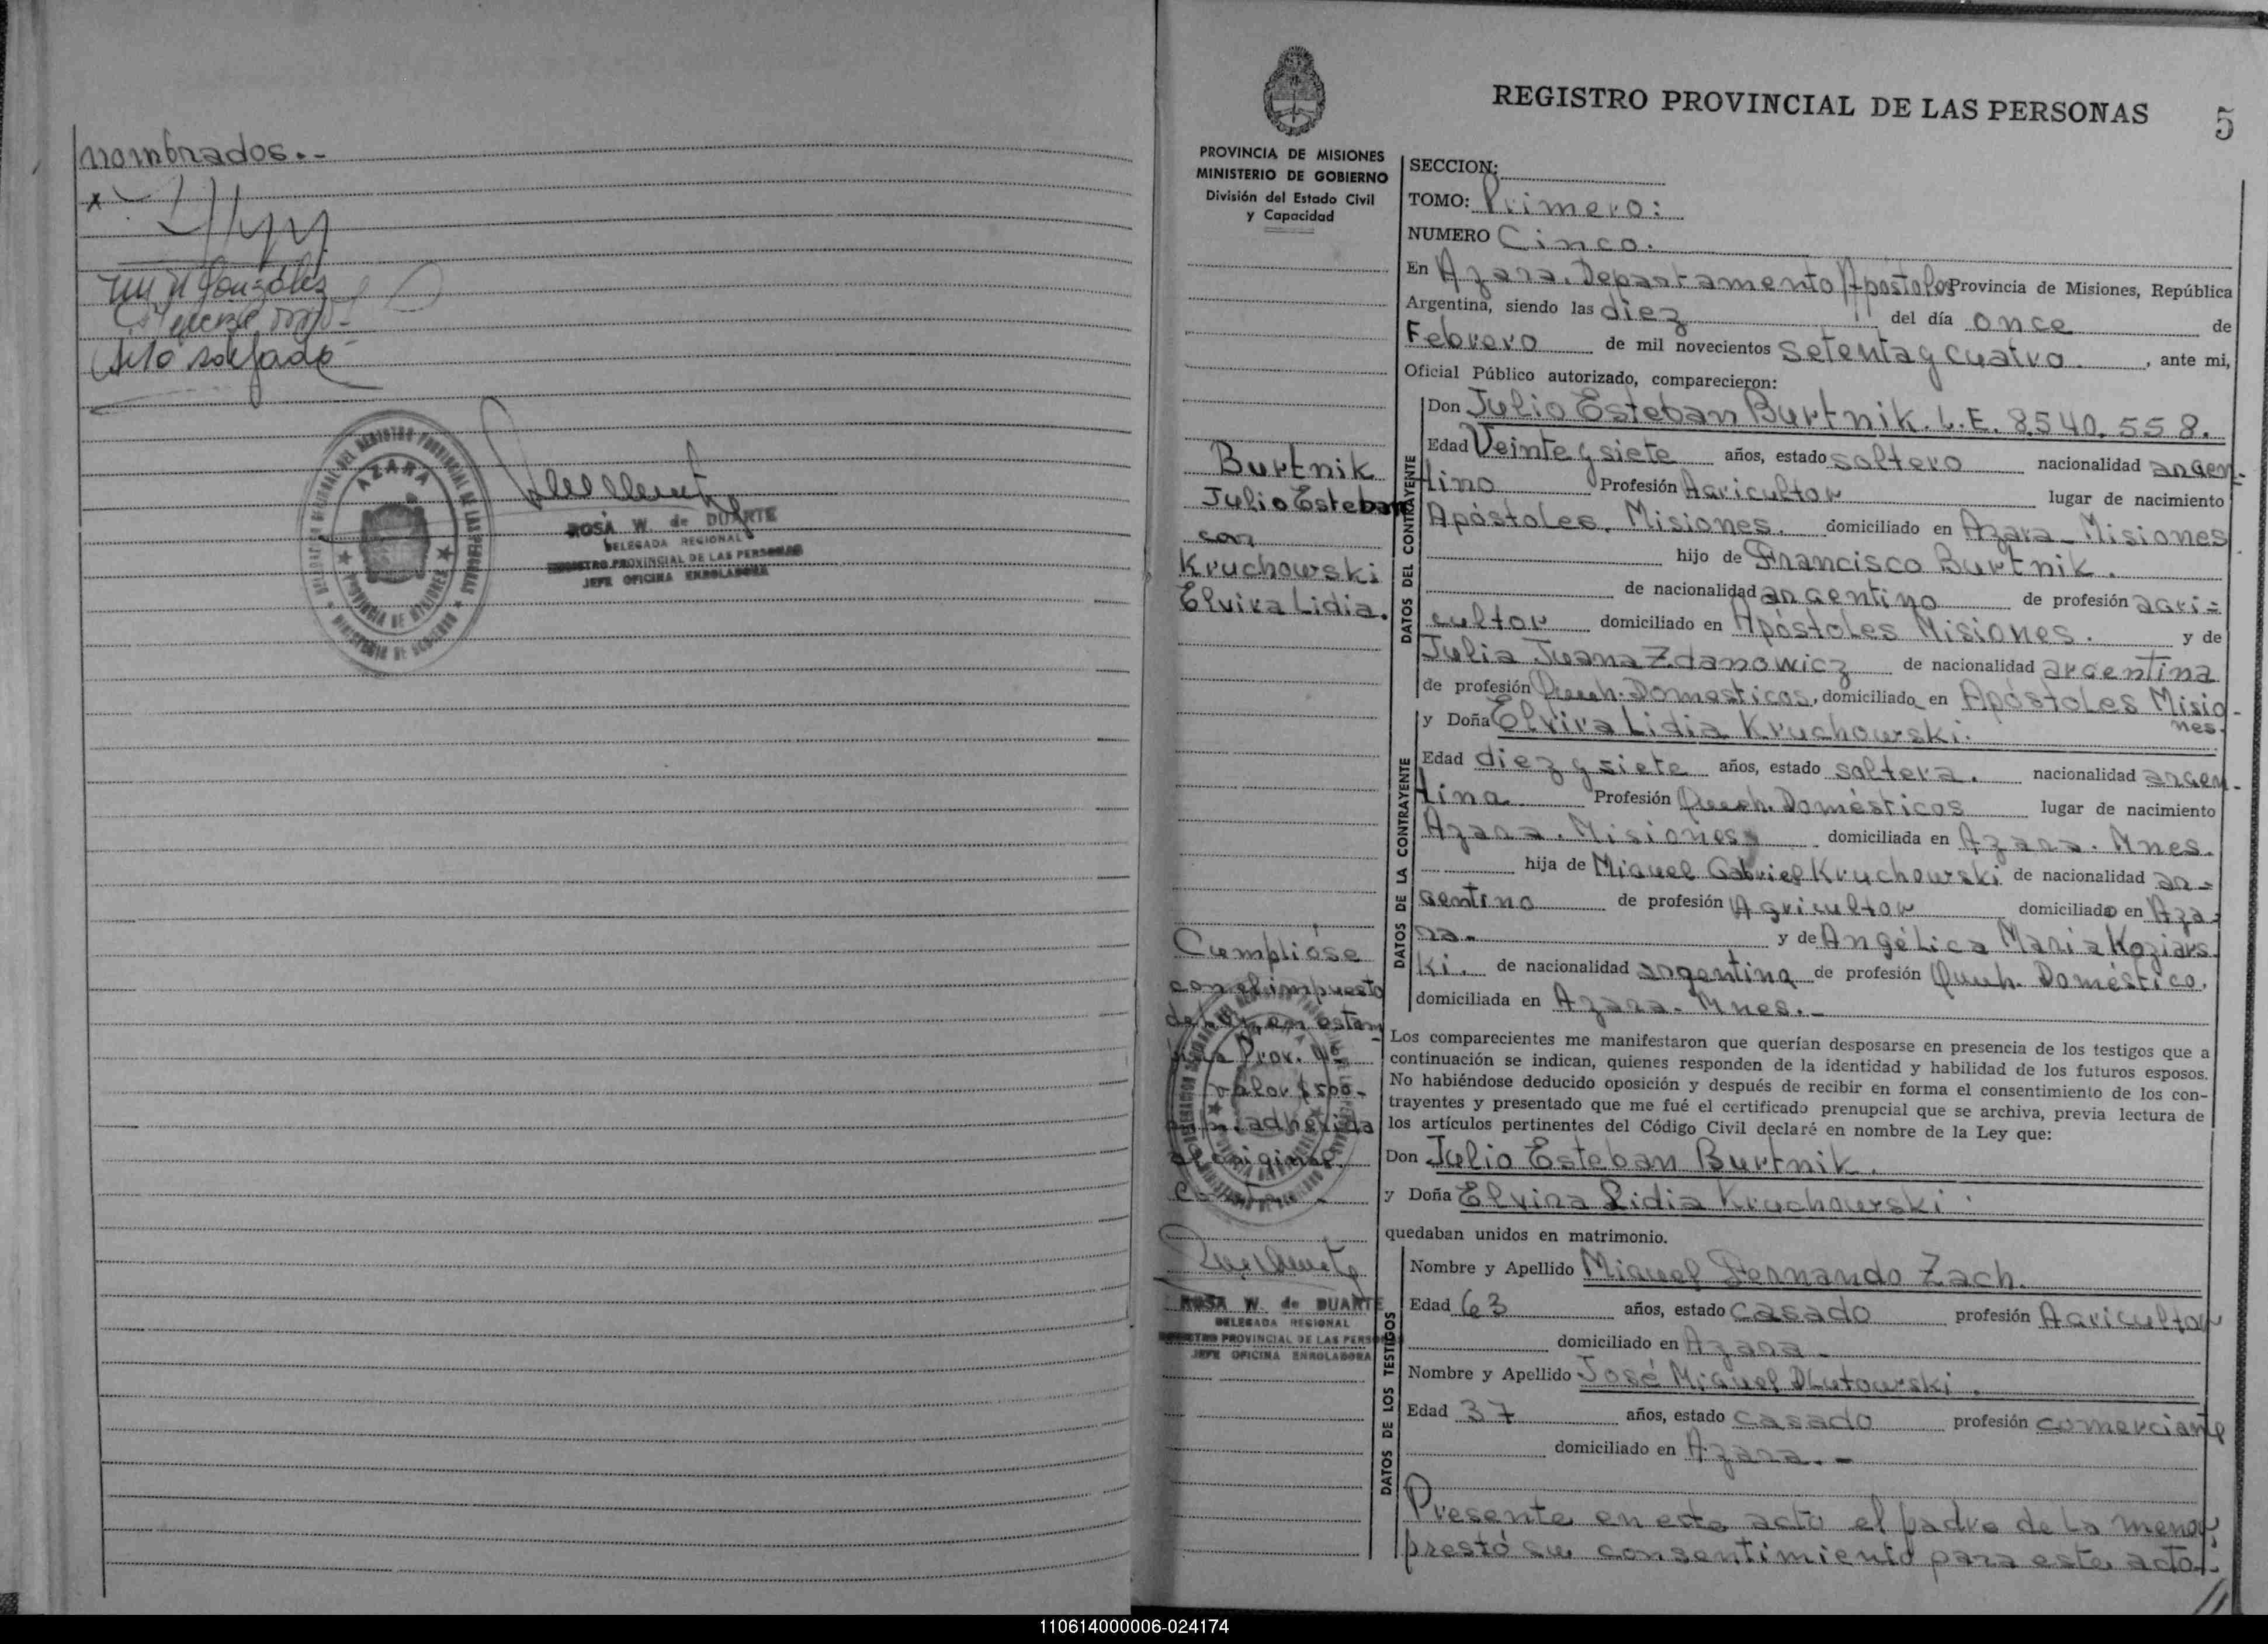 nombrados.-
x
González
Selo Salgado
DELEGACION REGIONAL DEL REGISTRO PROVINCIAL DE LAS PERSONAS
AZARA
PROVINCIA DE MISIONES
MINISTERIO DE GOBIERNO
ROSA W. de DUARTE
DELEGADA REGIONAL
REGISTRO PROVINCIAL DE LAS PERSONAS
JEFE OFICINA ENROLADORA
REGISTRO PROVINCIAL DE LAS PERSONAS
5
PROVINCIA DE MISIONES
MINISTERIO DE GOBIERNO
División del Estado Civil
y Capacidad
Burtnik
Julio Esteban
con
Kruchowski
Elvira Lidia.
Cumplióse
con el impuesto
de Ley, en estam
Prov. Nº
valor $500-
adherida
al original.
ROSA W. de DUARTE
DELEGADA REGIONAL
REGISTRO PROVINCIAL DE LAS PERSONAS
JEFE OFICINA ENROLADORA
SECCION:
TOMO: Primero:
NUMERO Cinco.
En Azara. Departamento Apóstoles Provincia de Misiones, República
Argentina, siendo las diez del día once de
Febrero de mil novecientos setenta y cuatro , ante mi,
Oficial Público autorizado, comparecieron:
DATOS DEL CONTRAYENTE
Don Julio Esteban Burtnik. L.E. 8.540.558.
Edad Veinte y siete años, estado soltero nacionalidad argen-
tino Profesión Agricultor lugar de nacimiento
Apóstoles. Misiones. domiciliado en Azara - Misiones
hijo de Francisco Burtnik.
de nacionalidad argentino de profesión agri=
cultor domiciliado en Apóstoles Misiones. y de
Julia Juana Zdanowicz de nacionalidad argentina
de profesión Queh. Domesticos, domiciliado en Apóstoles Misio-
nes.
DATOS DE LA CONTRAYENTE
y Doña Elvira Lidia Kruchowski.
Edad diez y siete años, estado soltera. nacionalidad argen-
tina Profesión Queh. Domésticos lugar de nacimiento
Azara. Misiones domiciliada en Azara. Mnes.
hija de Miguel Gabriel Kruchowski de nacionalidad ar-
gentino de profesión Agricultor domiciliado en Aza-
ra. y de Angélica Maria Koziars
ki. de nacionalidad argentina de profesión Queh. Doméstico.
domiciliada en Azara. Mnes.-
Los comparecientes me manifestaron que querían desposarse en presencia de los testigos que a
continuación se indican, quienes responden de la identidad y habilidad de los futuros esposos.
No habiéndose deducido oposición y después de recibir en forma el consentimiento de los con-
trayentes y presentado que me fué el certificado prenupcial que se archiva, previa lectura de
los artículos pertinentes del Código Civil declaré en nombre de la Ley que:
Don Julio Esteban Burtnik.
y Doña Elvira Lidia Kruchowski.
quedaban unidos en matrimonio.
DATOS DE LOS TESTIGOS
Nombre y Apellido Miguel Fernando Zach.
Edad 63 años, estado casado profesión Agricultor
domiciliado en Azara -
Nombre y Apellido José Miguel Dlutowski.
Edad 37 años, estado casado profesión comerciante
domiciliado en Azara.-
Presente en este acto el padre de la menor,
prestó su consentimiento para este acto.-
110614000006-024174